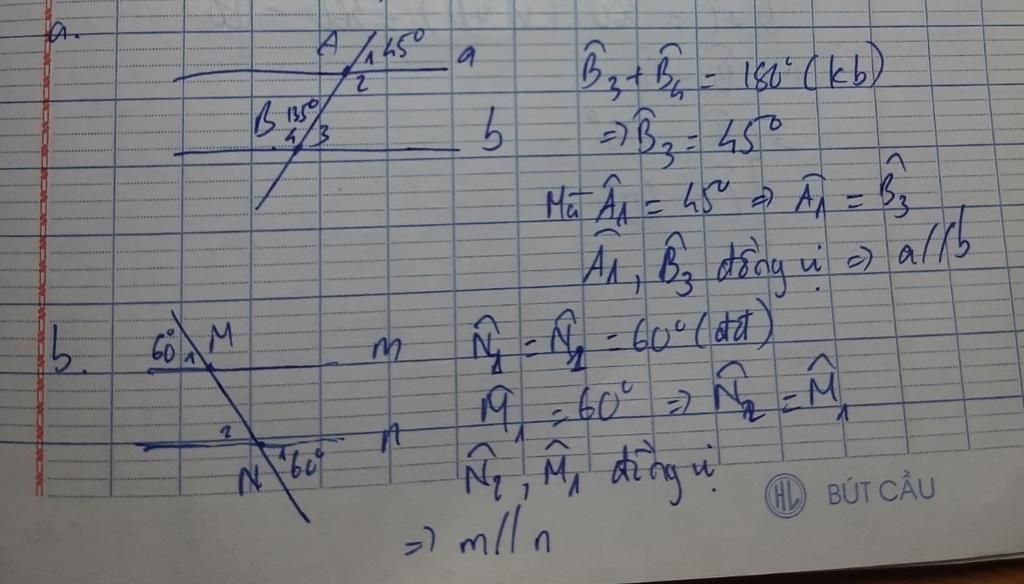 a.
A 1 45° a
2
B 135°
4 3 b
B̂₃ + B̂₄ = 180° (kb)
⇒ B̂₃ = 45°
Mà Â₁ = 45° ⇒ Â₁ = B̂₃
Â₁, B̂₃ đồng vị ⇒ a//b
b.
60° 1 M m
2 n
N 1 60°
N̂₁ = N̂₂ = 60° (đđ)
M̂₁ = 60° ⇒ N̂₂ = M̂₁
N̂₂, M̂₁ đồng vị
⇒ m//n
HL BÚT CẦU